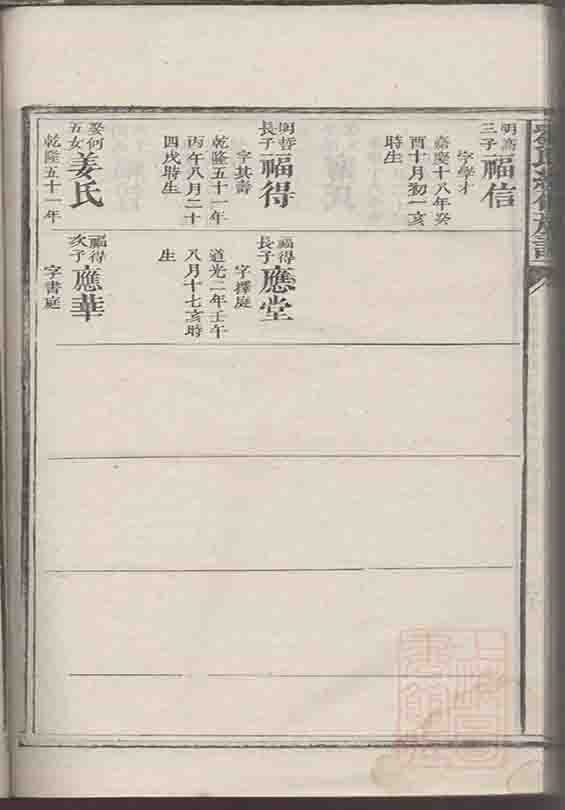 三子
福信
字學才
嘉慶十八年癸
酉十月初一亥
時生
明哲
長子
福得
字其壽
乾隆五十一年
丙午八月二十
四戌時生
娶何
五女
姜氏
乾隆五十一年
福得
長子
應堂
字擇庭
道光二年壬午
八月十七亥時
生
福得
次子
應華
字書庭